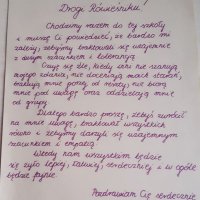 Drogi Rówieśniku!
Chodzimy razem do tej szkoły
i muszę Ci powiedzieć, że bardzo mi
zależy, żebyśmy traktowali się wzajemnie
z dużym szacunkiem i tolerancją.
Czuję się źle, kiedy inni nie szanują
mojego zdania, nie doceniają moich starań,
traktują mnie gorzej od innych, nie biorą
mnie pod uwagę oraz odtrącają mnie
od grupy.
Dlatego bardzo proszę, żebyś zwrócił
na mnie uwagę, traktował wszystkich
równo i żebyśmy darzyli się wzajemnym
szacunkiem i empatią.
Wtedy nam wszystkim będzie
się żyło lepiej, łatwiej, serdeczniej, a w ogóle
będzie fajnie.
Pozdrawiam Cię serdecznie